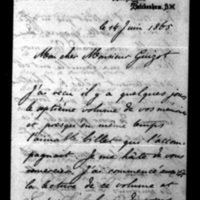 le 18 Juin 1865
Mon cher Monsieur Guizot
J'ai reçu il y a quelques jours
le septième volume de vos mémoires
et presqu'en même temps
l'aimable billet qui l'accom-
pagnait. Je me hâte de vous
remercier. J'ai commencé
la lecture de ce volume et